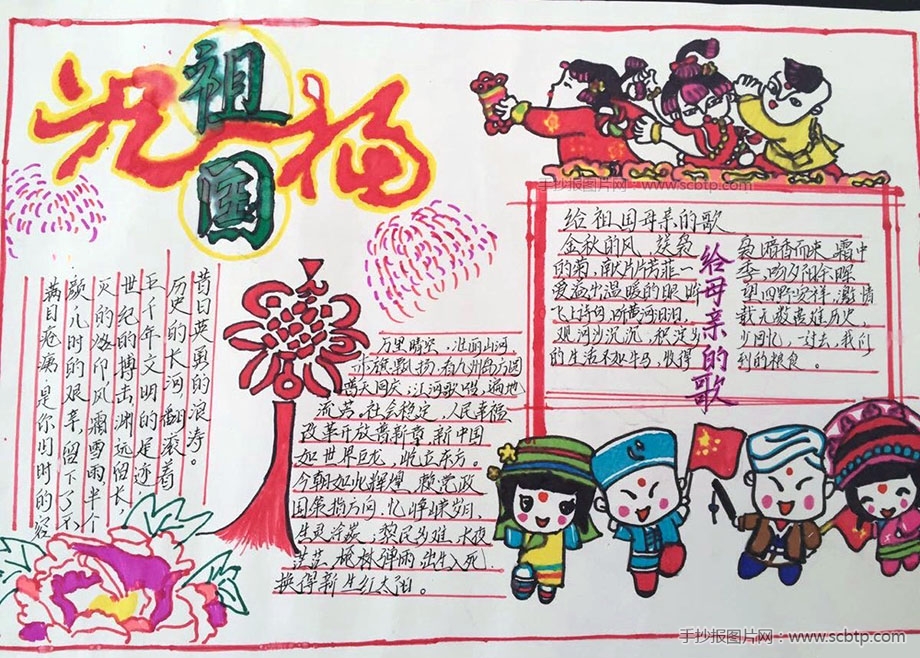 祝福
祖国
手抄报图片网：www.scbtp.com
给祖国母亲的歌
金秋的风，送袅
的菊，献片片芳菲一
爱溢出温暖的眼眸
飞上诗句，听黄河汩汩，
观河沙沉沉，积淀多
的生活和牛马，收得
给母亲的歌
袅暗香而来，霜中
季，吻夕阳余晖
望四野安祥，激情
载无数苦难历史，
少回忆，一对去，我们
利的粮食。
昔日英勇的浪涛。
历史的长河翻滚着
五千年文明的足迹
世纪的博击渊远留长，
灭的烙印风霜雪雨半个
儿时的艰亲留下了不
满目疮痍是你旧时的容
万里晴空，壮丽山河
赤旗飘扬，看九州岛方圆
普天同庆，江河歌唱，遍地
流芳。社会稳定，人民幸福
改革开放普新章，新中国
如世界巨龙，屹立东方。
今朝如此辉煌，赖党政
国策指方向，忆峥嵘岁月，
生灵涂炭，黎民多难，长夜
茫茫，枪林弹雨，出生入死
换得新生红太阳。
手抄报图片网：www.scbtp.com